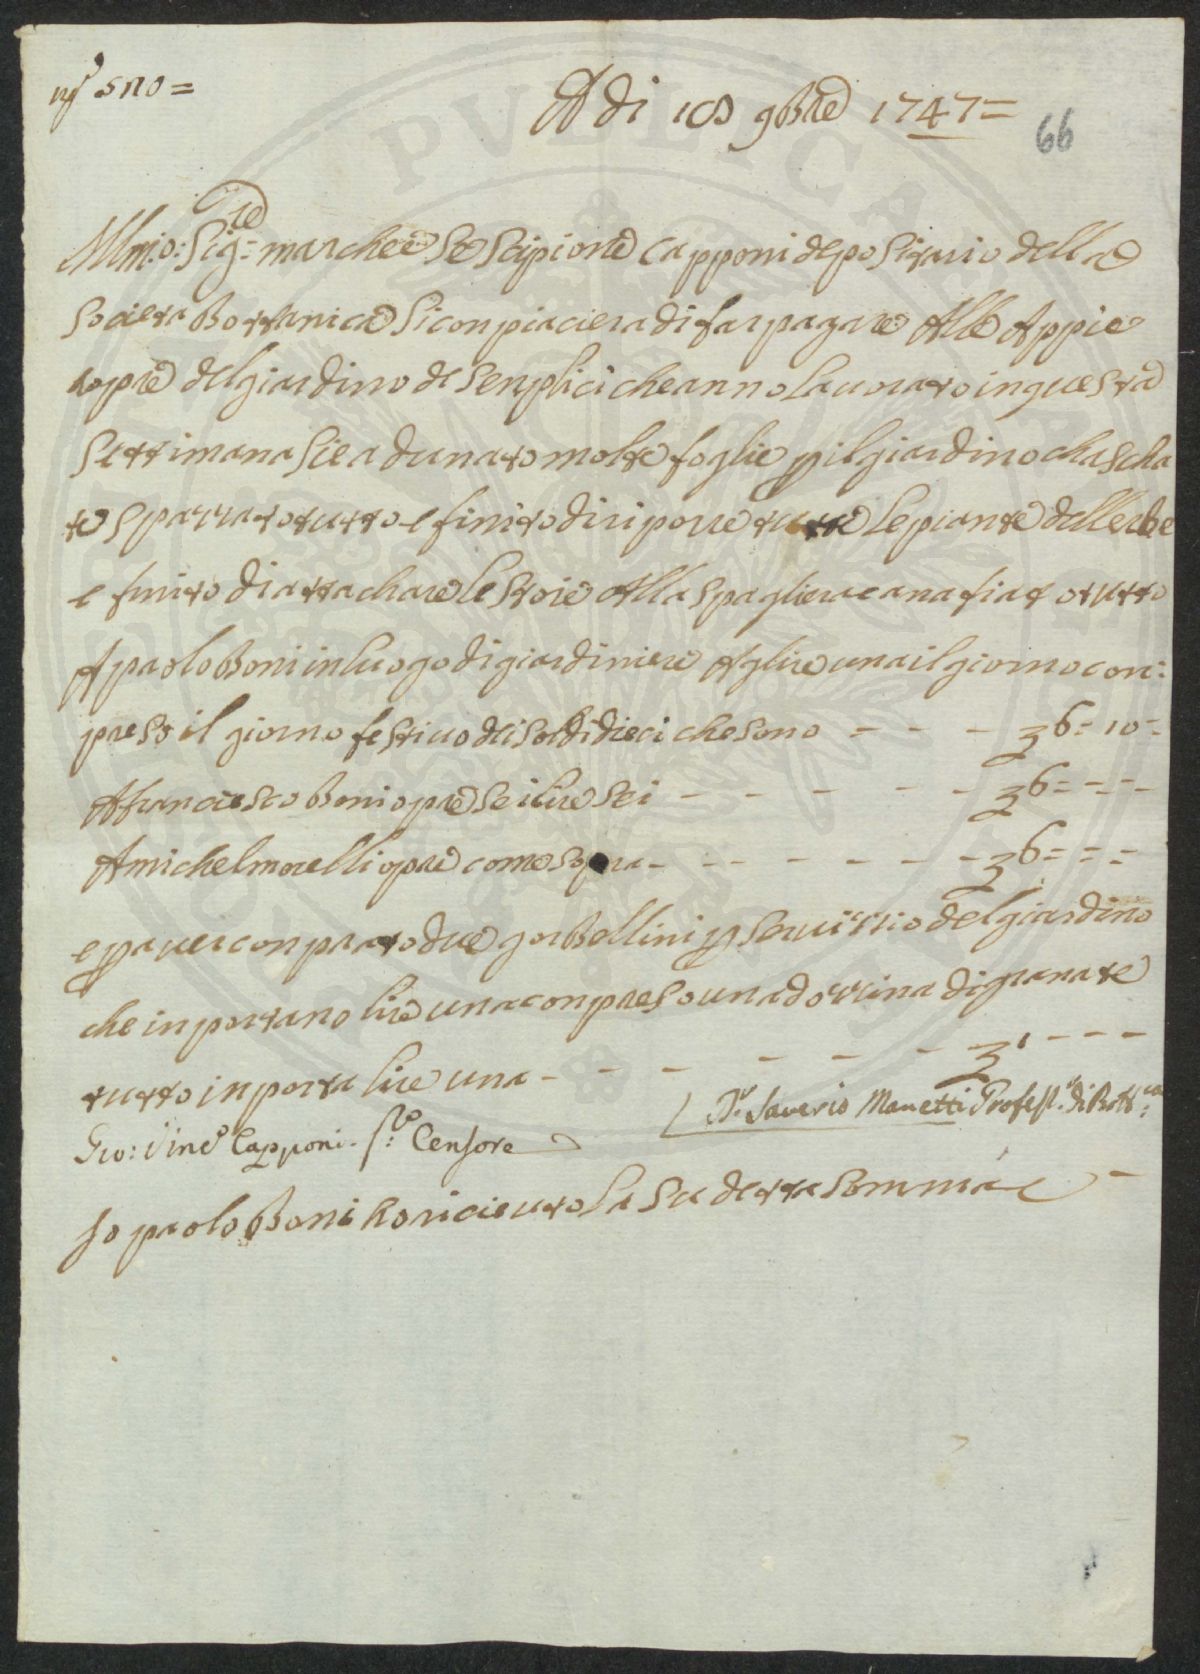 510=
A di 18 9bre 1747=
66
Illmo: Sigre: marchese Scipione Capponi depositario della
Societa Bottanica Si conpiaciera di far pagare Alle Appie
hopre del giardino de Senplici che anno lauorato in questa
Settimana Sie adunato molte foglie p il giardino chascha
te spazzato tutto e finito di riporre tutte le piante dellerbe
e finito di attachare le Stoie Alla Spagliera anafiato tutto
A paolo Boni in luogo di giardiniere A glire una il giorno con:
preso il giorno festiuo di soldi dieci che sono - - - 6=10=
A franciesco Boni opre sei lire sei - - - - - - 6= - -
A michel morelli opre come sopra - - - - - - 6= = =
e p auer conprato due gorbellini p seruizzio del giardino
che inportano lire una conpreso una dozzina di granate
tutto inporta lire una - - - - - - 1 - - -
Dr. Saverio Manetti Profess. di Bott.ca
Gio: Vinco Capponi Censore
Io paolo Boni ho riceuuto la su detta somma